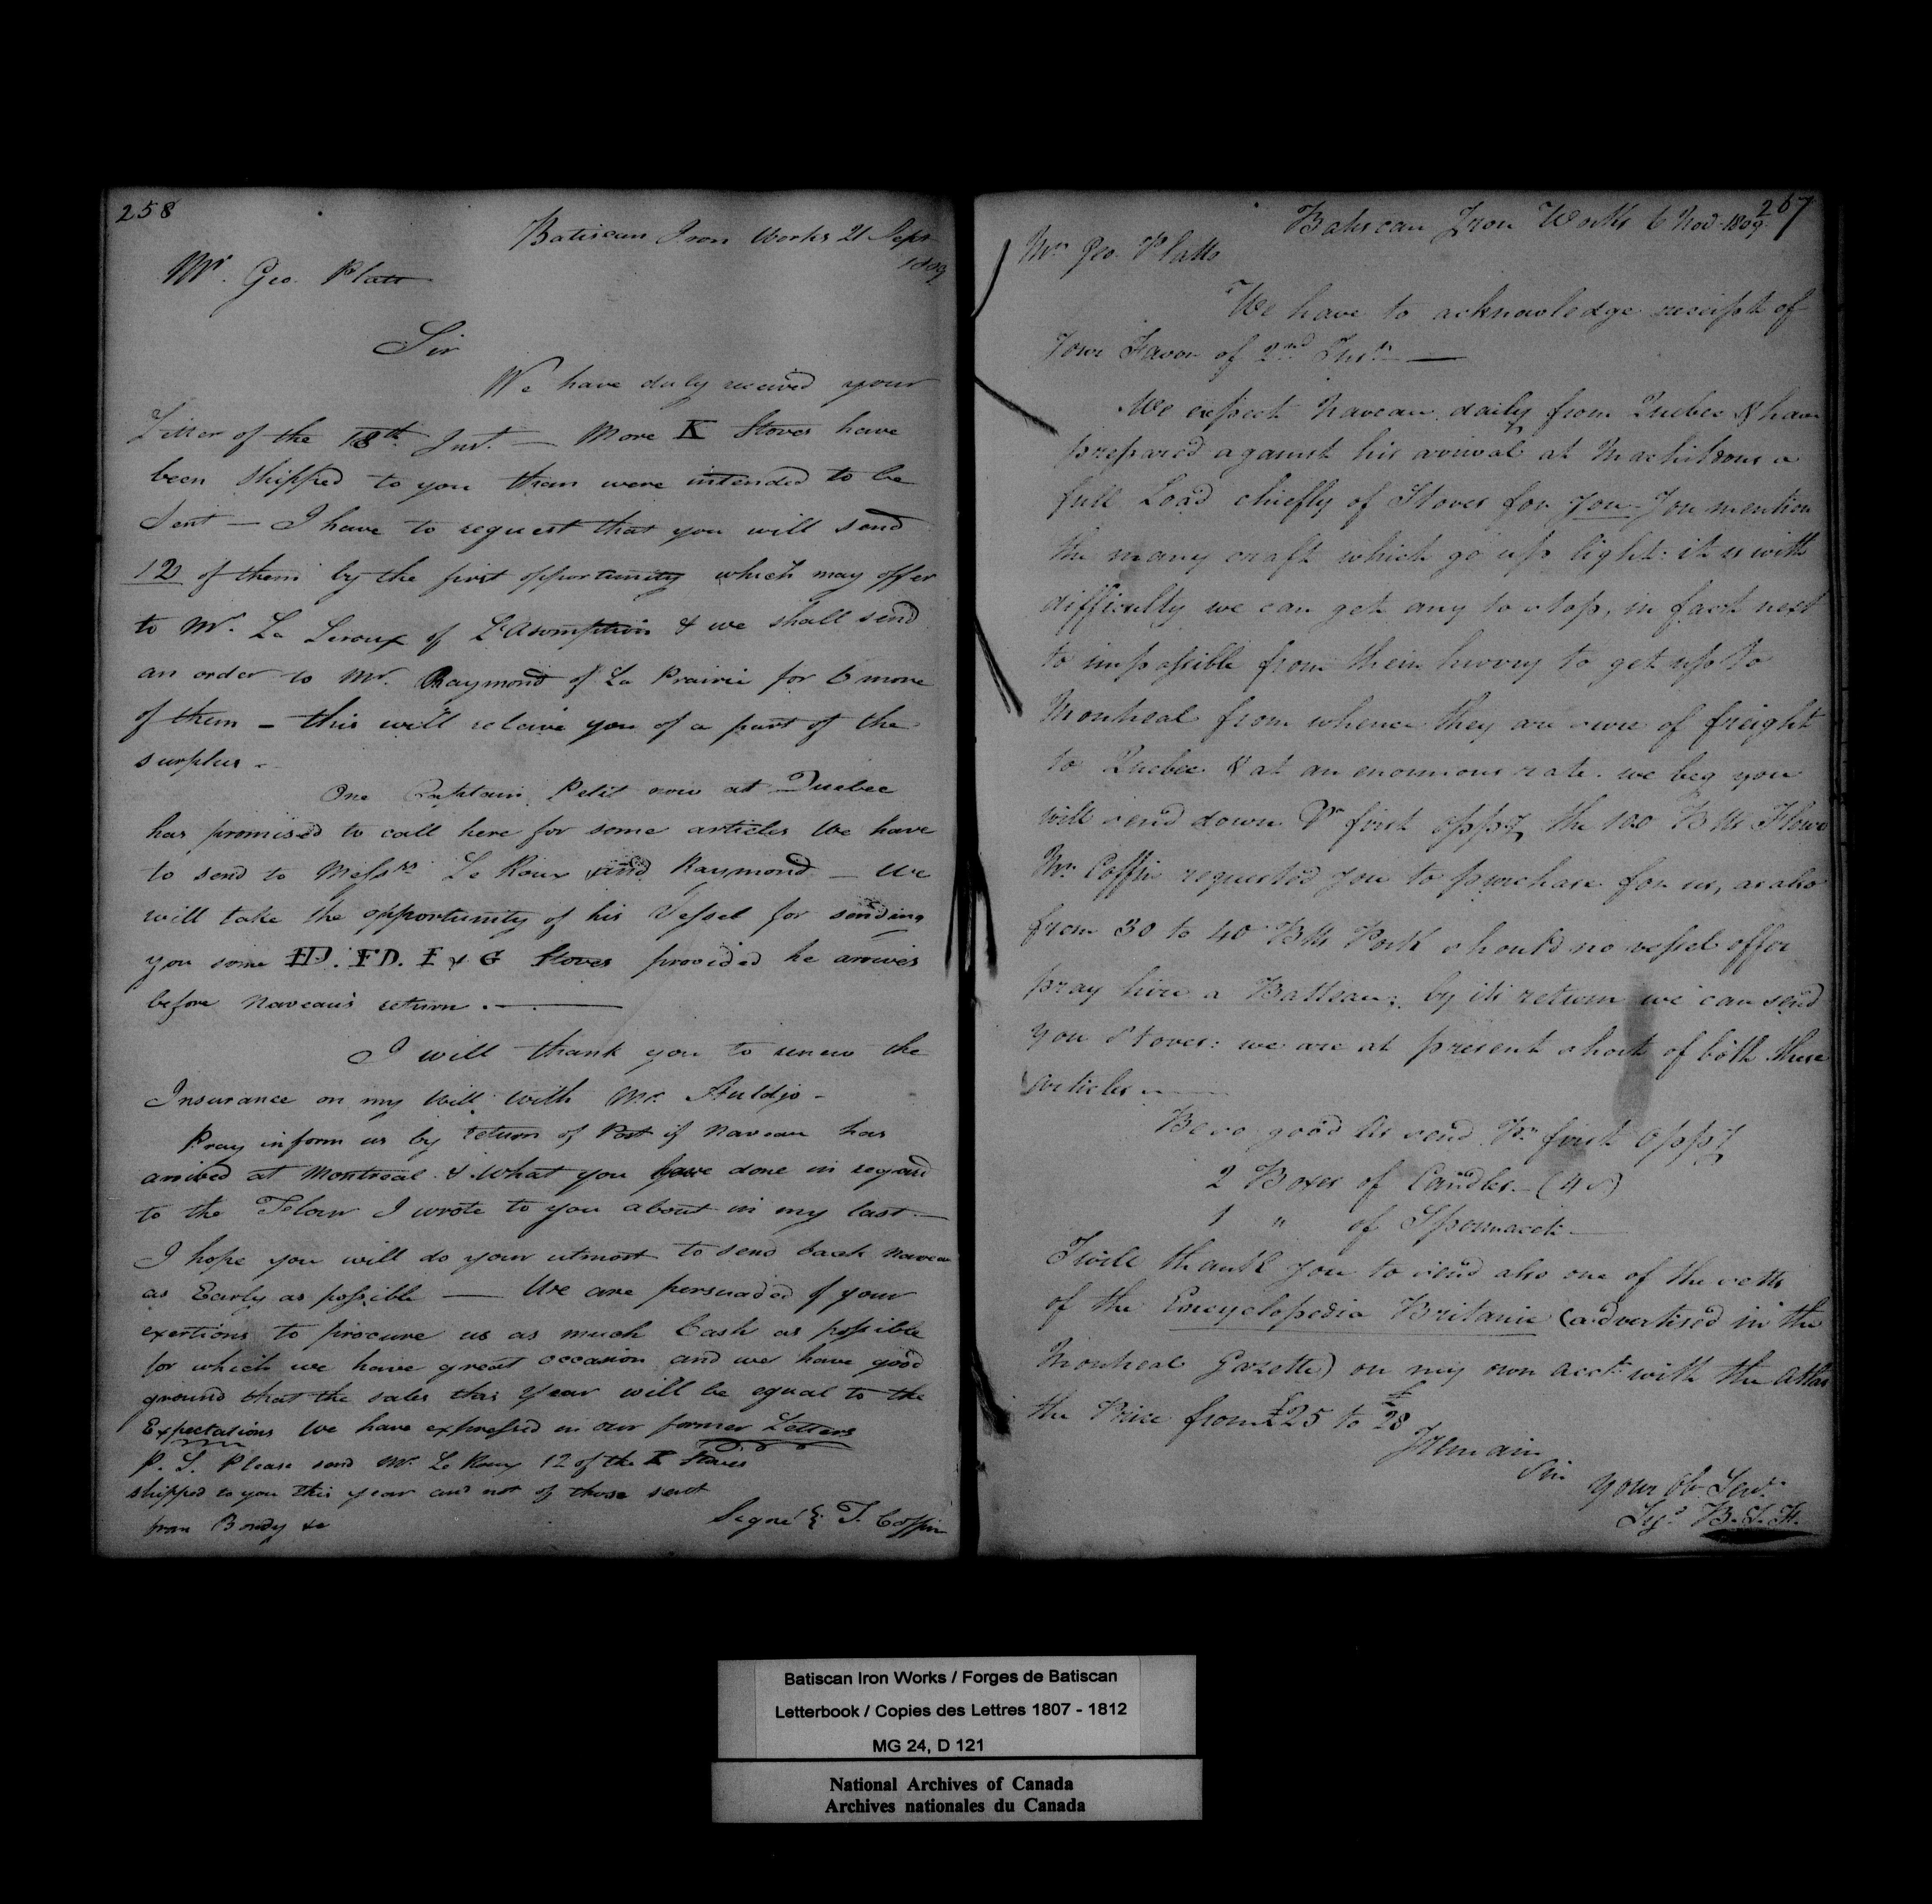 258
Batiscan Iron Works 21 Sept
1809
Mr. Geo. Platt
Sir
We have duly received your
Letter of the 18th Inst. — More K Stoves have
been shipped to you than were intended to be
Sent — I have to request that you will send
12 of them by the first opportunity which may offer
to Mr. Le Leroux of L'Asomption & we shall send
an order to Mr. Raymond of La Prairie for 6 more
of them — this will releive you of a part of the
surplus —
One Captain Petit now at Quebec
has promised to call here for some articles We have
to send to Messrs Le Roux and Raymond — We
will take the opportunity of his Vessel for sending
you some HD. FD. F & G Stoves provided he arrives
before Naveau's return. —
I will thank you to renew the
Insurance on my Will with Mr. Auldjo —
Pray inform us by return of Post if Naveau has
arrived at Montreal & What you have done in regard
to the I wrote to you about in my last —
I hope you will do your utmost to send back Naveau
as Early as possible — We are persuaded of your
exertions to procure us as much Cash as possible
for which we have great occasion and we have good
ground that the sales this Year will be equal to the
Expectations We have expressed in our former Letters
P. S. Please send Mr. Le Roux 12 of the K Stoves
shipped to you this year and not of those sent
from Bondy &c
Signed T. Coffin
267
Batiscan Iron Works 6 Nov 1809
Mr. Geo. Platts
We have to acknowledge receipt of
Your Favor of 2nd Inst. —
We expect Naveau daily from Quebec & have
prepared against his arrival at Machithous a
full Load chiefly of Stoves for you. You mention
the many craft which go up light: it is with
difficulty we can get any to stop, in fact next
to impossible from their hurry to get up to
Montreal from whence they are sure of freight
to Quebec & at an enormous rate. we beg you
will send down Pr first oppy the 100 Blls Flour
Mr. Coffin requested you to purchase for us, as also
from 30 to 40 Blls Pork should no vessel offer
pray hire a Batteau; by its return we can send
you Stoves: we are at present short of both these
articles —
Be so good as send Pr first oppy
2 Boxes of Candles — (4s)
1 " of Spermaceti —
I will thank you to send also one of the setts
of the Encyclopedia Britanic (advertised in the
Montreal Gazette) on my own acct. with the Atlas
the Price from £25 to £28
I Remain
Sir
Your Ob Servt.
Sigd. B. I. F.
Batiscan Iron Works / Forges de Batiscan
Letterbook / Copies des Lettres 1807 - 1812
MG 24, D 121
National Archives of Canada
Archives nationales du Canada